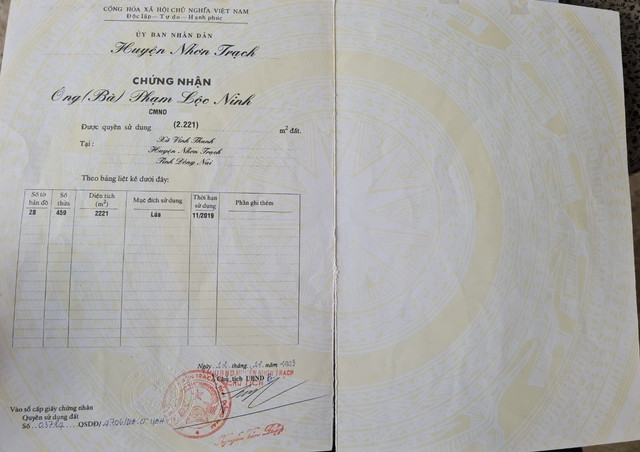 CỘNG HÒA XÃ HỘI CHỦ NGHĨA VIỆT NAM
Độc lập - Tự do - Hạnh phúc
ỦY BAN NHÂN DÂN
Huyện Nhơn Trạch
CHỨNG NHẬN
Ông (Bà) Phạm Lộc Ninh
CMND
Được quyền sử dụng (2.221) m² đất.
Tại : Xã Vĩnh Thanh
Huyện Nhơn Trạch
Tỉnh Đồng Nai
Theo bảng liệt kê dưới đây:
Số tờ bản đồ Số thửa Diện tích (m²) Mục đích sử dụng Thời hạn sử dụng Phần ghi thêm
28 459 2221 Lúa 11/2019
Ngày tháng năm
TM. UBND HUYỆN NHƠN TRẠCH
Chủ tịch UBND
CHỦ TỊCH
Vào sổ cấp giấy chứng nhận
Quyền sử dụng đất
Số QSDĐ/